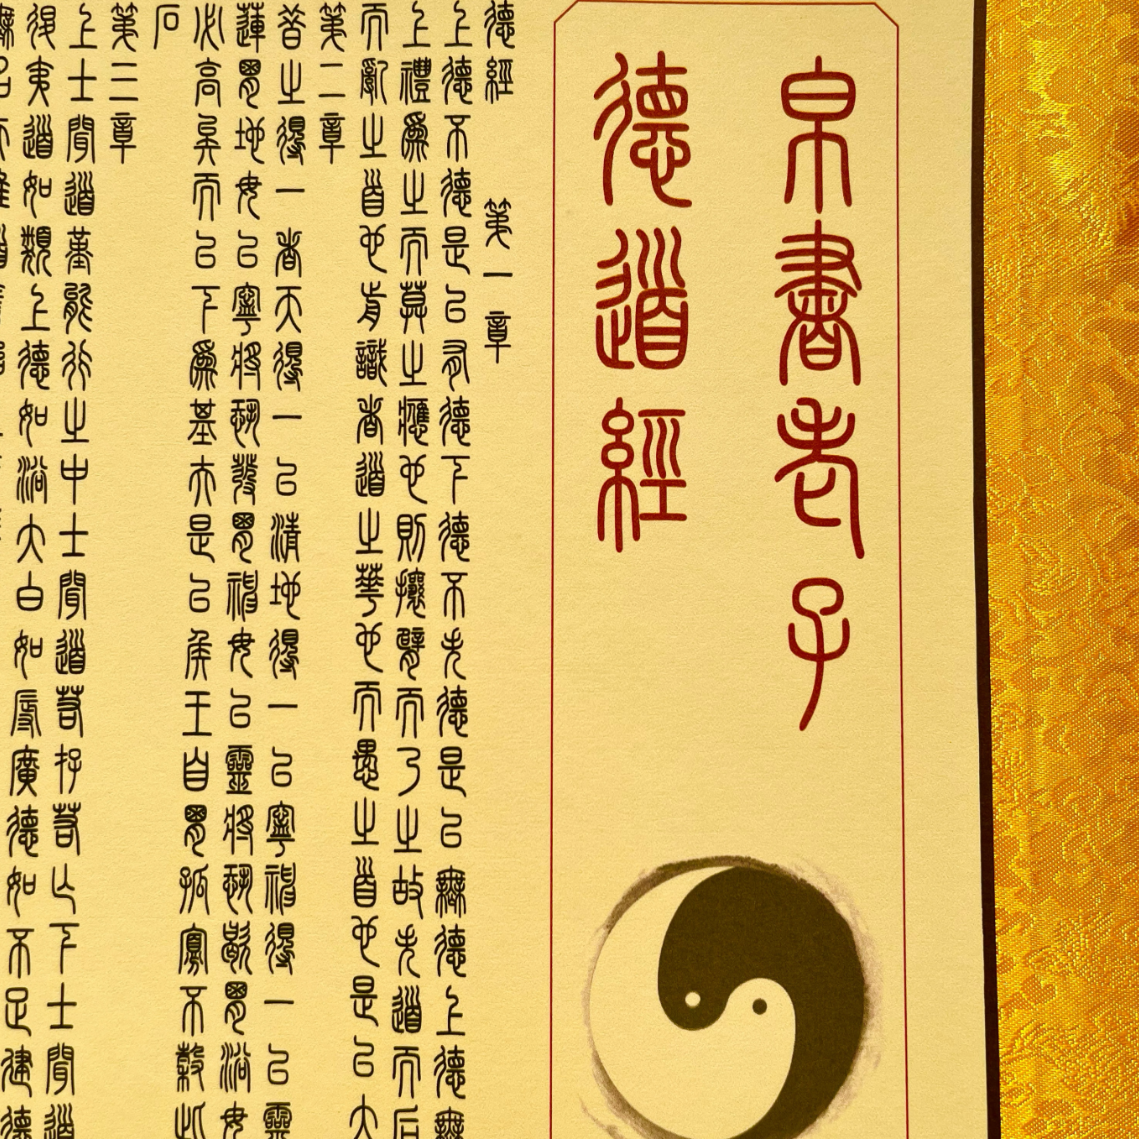 帛書老子
德道經
德經 第一章
上德不德是以有德下德不失德是以無德上德無
上禮爲之而莫之應也則攘臂而乃之故失道而后
而亂之首也前識者道之華也而愚之首也是以大
第二章
昔之得一者天得一以清地得一以寧神得一以靈
蓮胃地毋已寧將恐發胃神毋已靈將恐歇胃浴毋
必高矣而以下爲基夫是以侯王自胃孤寡不穀此
石
第三章
上士聞道堇能行之中士聞道若存若亡下士聞道
夷道如類上德如浴大白如辱廣德如不足建德